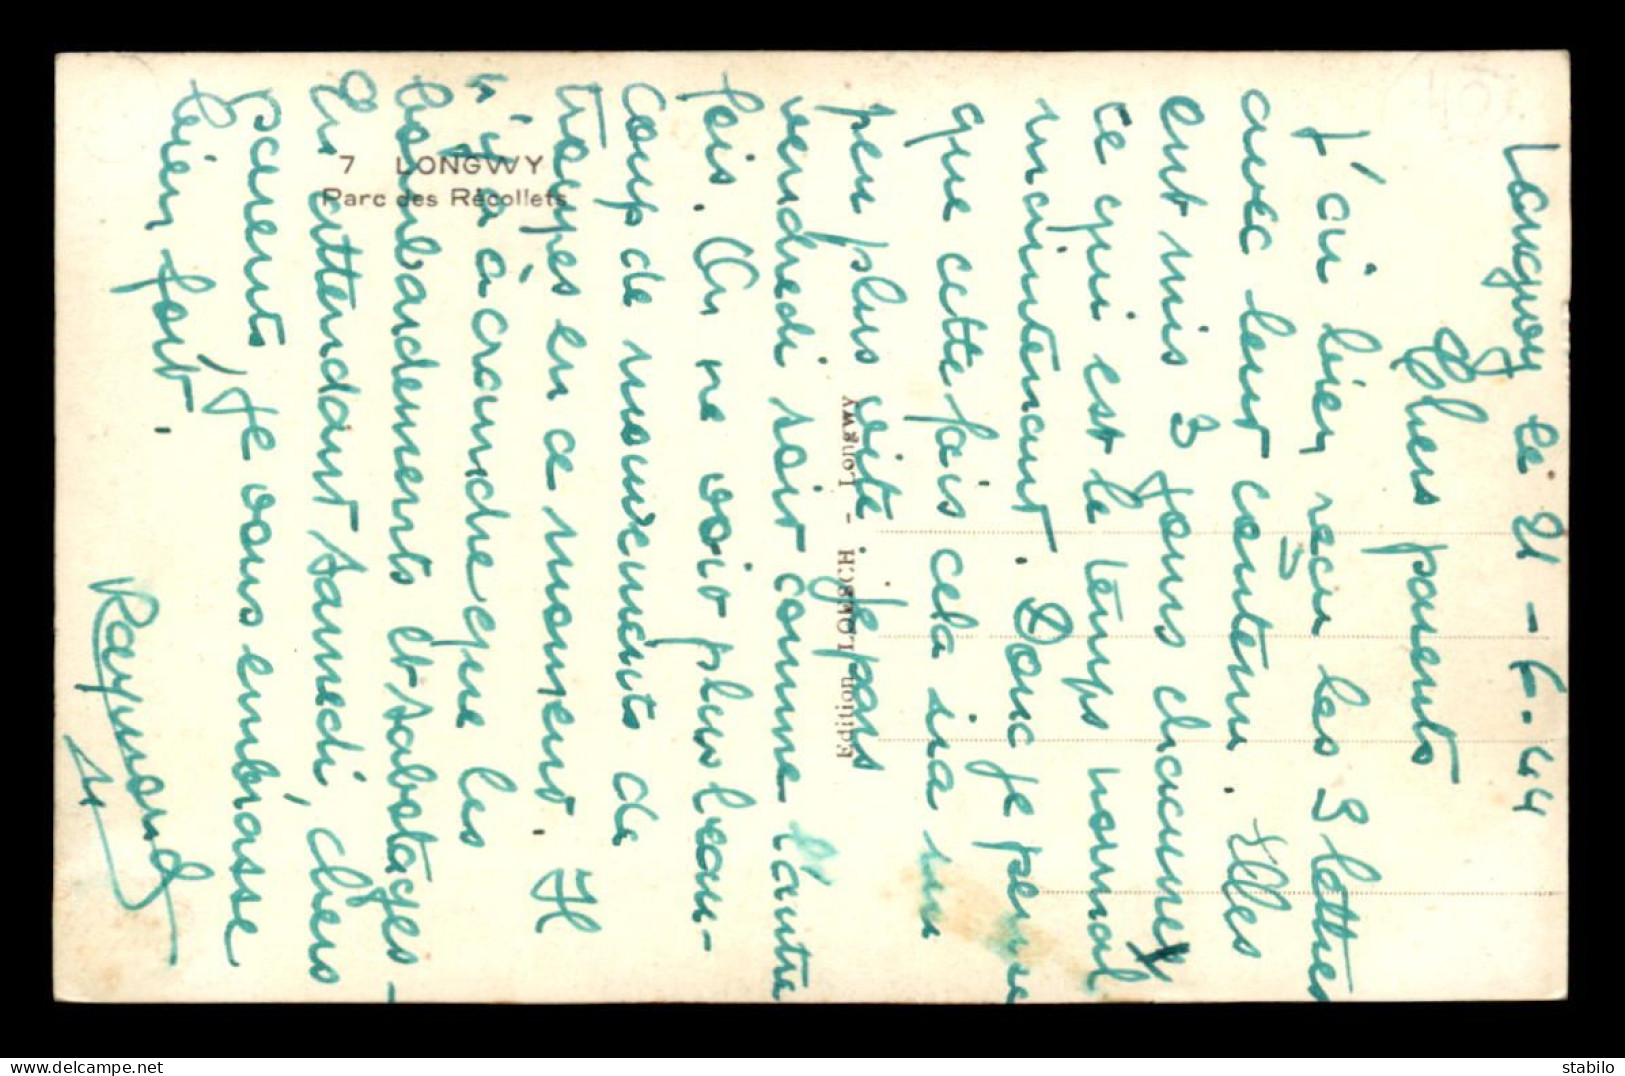 Longwy le 21-6-44
Chers parents
J'ai bien reçu les 3 lettres
avec leur contenu. Elles
ont mis 3 jours chacunes
ce qui est le temps normal
maintenant. Donc je pense
que cette fois cela ira un
peu plus vite. Je pars
vendredi soir comme l'autre
fois. On ne voit plus beau-
coup de mouvements de
troupes en ce moment. Il
n'y a à craindre que les
bombardements et sabotages-
En attendant samedi, chers
parents, je vous embrasse
bien fort.
Raymond
7 LONGWY
Parc des Récollets
Edition LORSCH - LONGWY
stabilo